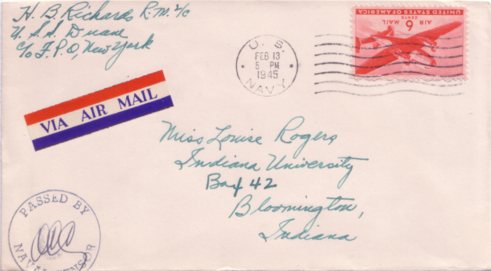 H. B. Richards R.M. 2/c
U.S.S. Duane
c/o F.P.O, New York
U. S.
FEB 13
5 PM
1945
NAVY
UNITED STATES OF AMERICA
AIR MAIL
6 CENTS
VIA AIR MAIL
Miss Louise Rogers
Indiana University
Box 42
Bloomington,
Indiana
PASSED BY
NAVAL CENSOR